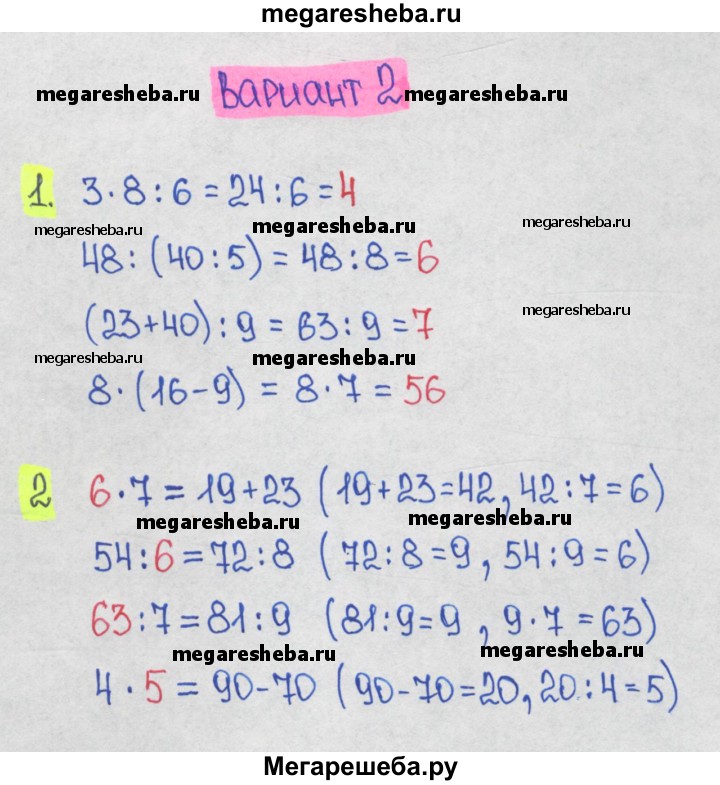 megaresheba.ru
megaresheba.ru Вариант 2 megaresheba.ru
1. 3·8:6=24:6=4
megaresheba.ru megaresheba.ru megaresheba.ru
48:(40:5)=48:8=6
megaresheba.ru
(23+40):9=63:9=7
megaresheba.ru megaresheba.ru
8·(16-9)=8·7=56
2 6·7=19+23 (19+23=42, 42:7=6)
megaresheba.ru megaresheba.ru
54:6=72:8 (72:8=9, 54:9=6)
63:7=81:9 (81:9=9, 9·7=63)
megaresheba.ru megaresheba.ru
4·5=90-70 (90-70=20, 20:4=5)
Мегарешеба.ру